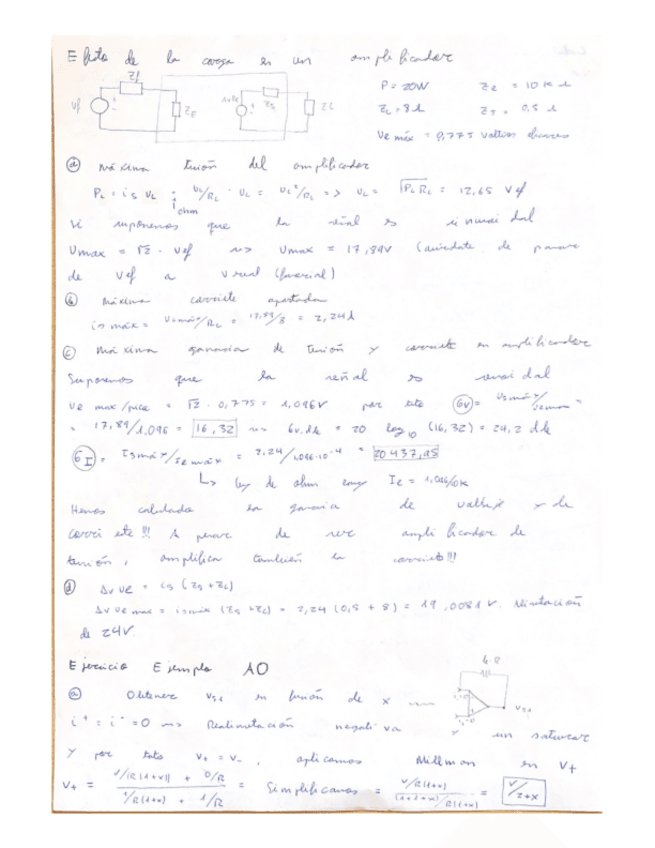 Efecto de la carga en un amplificador
Zf
Vf
ZE
Zs
ZL
P = 20W
ZL = 8Ω
Ze = 10K Ω
Zs = 0,5 Ω
Ve máx = 0,775 voltios eficaces
a) Máxima tensión del amplificador
PL = is UL = UL/RL · UL = UL²/RL => UL = √PL RL = 12,65 Vef
ohm
Si suponemos que la señal es sinusoidal
Umax = √2 · Vef => Umax = 17,89V (acuérdate de pasar
de Vef a V real (fasorial)
b) Máxima corriente aportada
is máx = Us máx/RL = 17,89/8 = 2,24A
c) Máxima ganancia de tensión y corriente en amplificador
Suponemos que la señal es senoidal
Ve max/pico = √2 · 0,775 = 1,096V por tanto Gv = Us máx/Ve max =
= 17,89/1,096 = 16,32 => Gv.db = 20 log10 (16,32) = 24,2 db
GI = Is máx/Ie máx = 2,24/1,096·10^-4 = 20437,95
↳ ley de ohm Ie = 1,096/10k
Hemos calculado la ganancia de voltaje y de
corriente!!! A pesar de ser amplificador de
tensión, amplifica también la corriente!!!
d) ΔvUE = is (Zs + ZL)
ΔvUE max = is máx (Zs + ZL) = 2,24 (0,5 + 8) = 19,0081V. Alimentación
de 24V.
Ejercicio Ejemplo AO
a) Obtener Vs1 en función de x
4R
Vs1
i+ = i- = 0 => Realimentación negativa y sin saturar
y por tanto V+ = V-, aplicamos Millman en V+
V+ = V/R(1+x) + 0/R / 1/R(1+x) + 1/R = Simplificamos = V/R(1+x) / (1+1+x)/R(1+x) = V/2+x